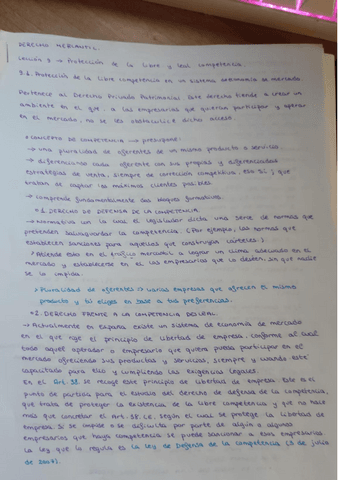 DERECHO MERCANTIL.
Lección 3 → Protección de la libre y leal competencia.
3.1. Protección de la libre competencia en un sistema de economía de mercado
Pertenece al Derecho Privado Patrimonial. Este derecho tiende a crear un
ambiente en el que a las empresarias que quieran participar y operar
en el mercado, no se les obstaculice dicho acceso.
• CONCEPTO DE COMPETENCIA → presupone:
→ una pluralidad de oferentes de un mismo producto o servicio.
→ diferenciando cada oferente con sus propias y diferenciadas
estrategias de venta, siempre de corrección competitiva, eso sí, y que
tratan de captar los máximos clientes posibles.
→ comprende fundamentalmente dos bloques normativos.
*1. DERECHO DE DEFENSA DE LA COMPETENCIA.
→ normativa en la cual el legislador dicta una serie de normas que
pretenden salvaguardar la competencia. (Por ejemplo, las normas que
establecen sanciones para aquellos que construyan cárteles.)
Atiende esto en el tráfico mercantil a lograr un clima adecuado en el
mercado y establecerse en él las empresarias que lo deseen, sin que nadie
se lo impida.
> Pluralidad de oferentes → varias empresas que ofrecen el mismo
producto y tú eliges en base a tus preferencias.
*2. DERECHO FRENTE A LA COMPETENCIA DESLEAL.
→ Actualmente en España existe un sistema de economía de mercado
en el que rige el principio de libertad de empresa, conforme al cual
todo aquel operador o empresario que quiera puede participar en el
mercado ofreciendo sus productos y servicios, siempre y cuando esté
capacitado para ello y cumpliendo las exigencias legales.
En el Art. 38. se recoge este principio de libertad de empresa. Este es el
punto de partida para el estudio del derecho de defensa de la competencia,
que trata de proteger la existencia de la libre competencia y que no hace
más que concretar el Art. 38. CE, según el cual se protege la libertad de
empresa. Si se impide o se dificulta por parte de algún o algunos
empresarios que haya competencia se puede sancionar a esos empresarios.
La ley que lo regula es la Ley de Defensa de la Competencia (3 de julio
de 2007).